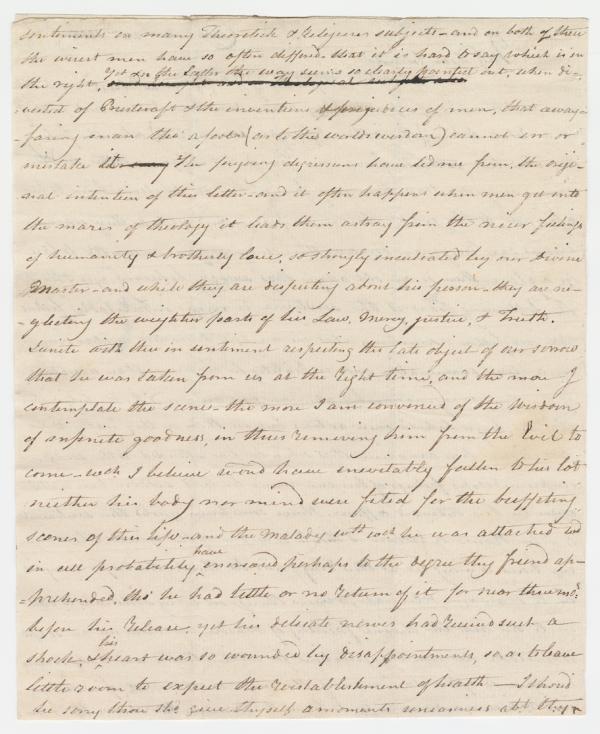 sentiments on many Theoretick & religious subjects - and on both of these
the wisest men have so often differed that it is hard to say which is in
the right, yet
the way seems so clearly pointed out, when di-
vested of Priestcraft & the inventions & prejudices of men, that a way-
faring man tho' a fool (as to the worlds wisdom) cannot err or
mistake The forgoing digressions have led me from the origi-
nal intention of this letter - and it often happens when men get into
the mazes of theology it leads them astray from the nicer feelings
of humanity & brotherly love, so strongly inculcated by our divine
Master - and while they are disputing about his person - they are ne-
-glecting the weightier parts of his Law, Mercy, justice, & Truth.
I unite with thee in sentiment respecting the late object of our sorrow
that he was taken from us at the right time, and the more I
contemplate the scene - the more I am convinced of the wisdom
of infinite goodness, in thus removing him from the Evil to
come - wch I believe would have inevitably fallen to his lot
neither his body nor mind were fited for the buffeting
scenes of this life - and the Malady wth wch he was attached wd
in all probability have increased perhaps to the degree thy friend ap-
=prehended, tho' he had little or no return of it for near three mo:
before his release, yet his delicate nerves had received such a
shock, & his heart was so wounded by disappointments, so as to leave
little room to expect the reestablishment of health - I should
be sorry thou shd give thyself a moments uneasiness abt thy